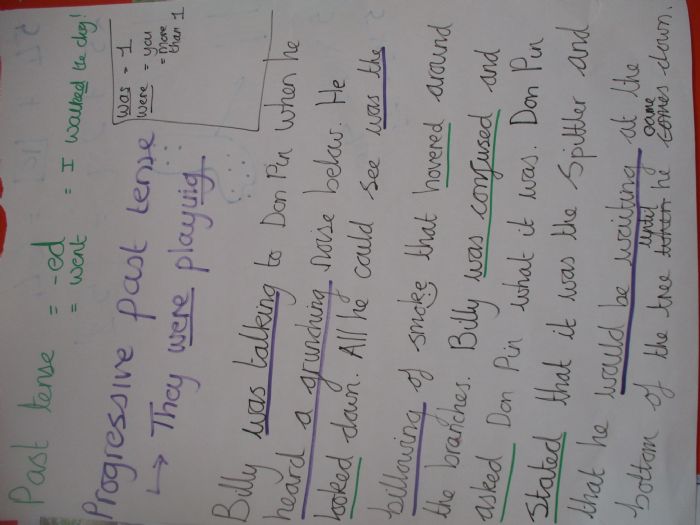 Past tense = -ed = I walked the dog!
= went
Progressive past tense
↳ They were playing
was = 1
were = you
= more than 1
Billy was talking to Don Pin when he
heard a grunching noise below. He
looked down. All he could see was the
billowing of smoke that hovered around
the branches. Billy was confused and
asked Don Pin what it was. Don Pin
stated that it was the Spittler and
that he would be waiting at the
bottom of the tree until he came down.